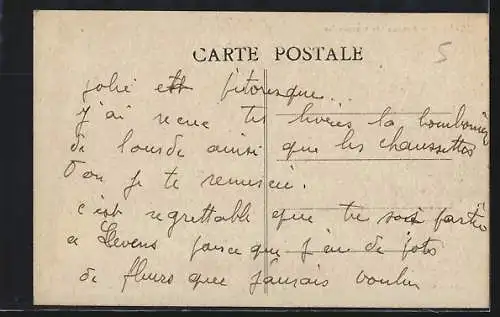 5
CARTE POSTALE
jolie et pitoresque...
j'ai recue tes livres la bombonière
de lourde ainsi que les chaussettes
Don je te remerci.
c'est regrettable que tu sois partie
a Levens parce que j'ai de jots
de fleurs que j'aurais voulu